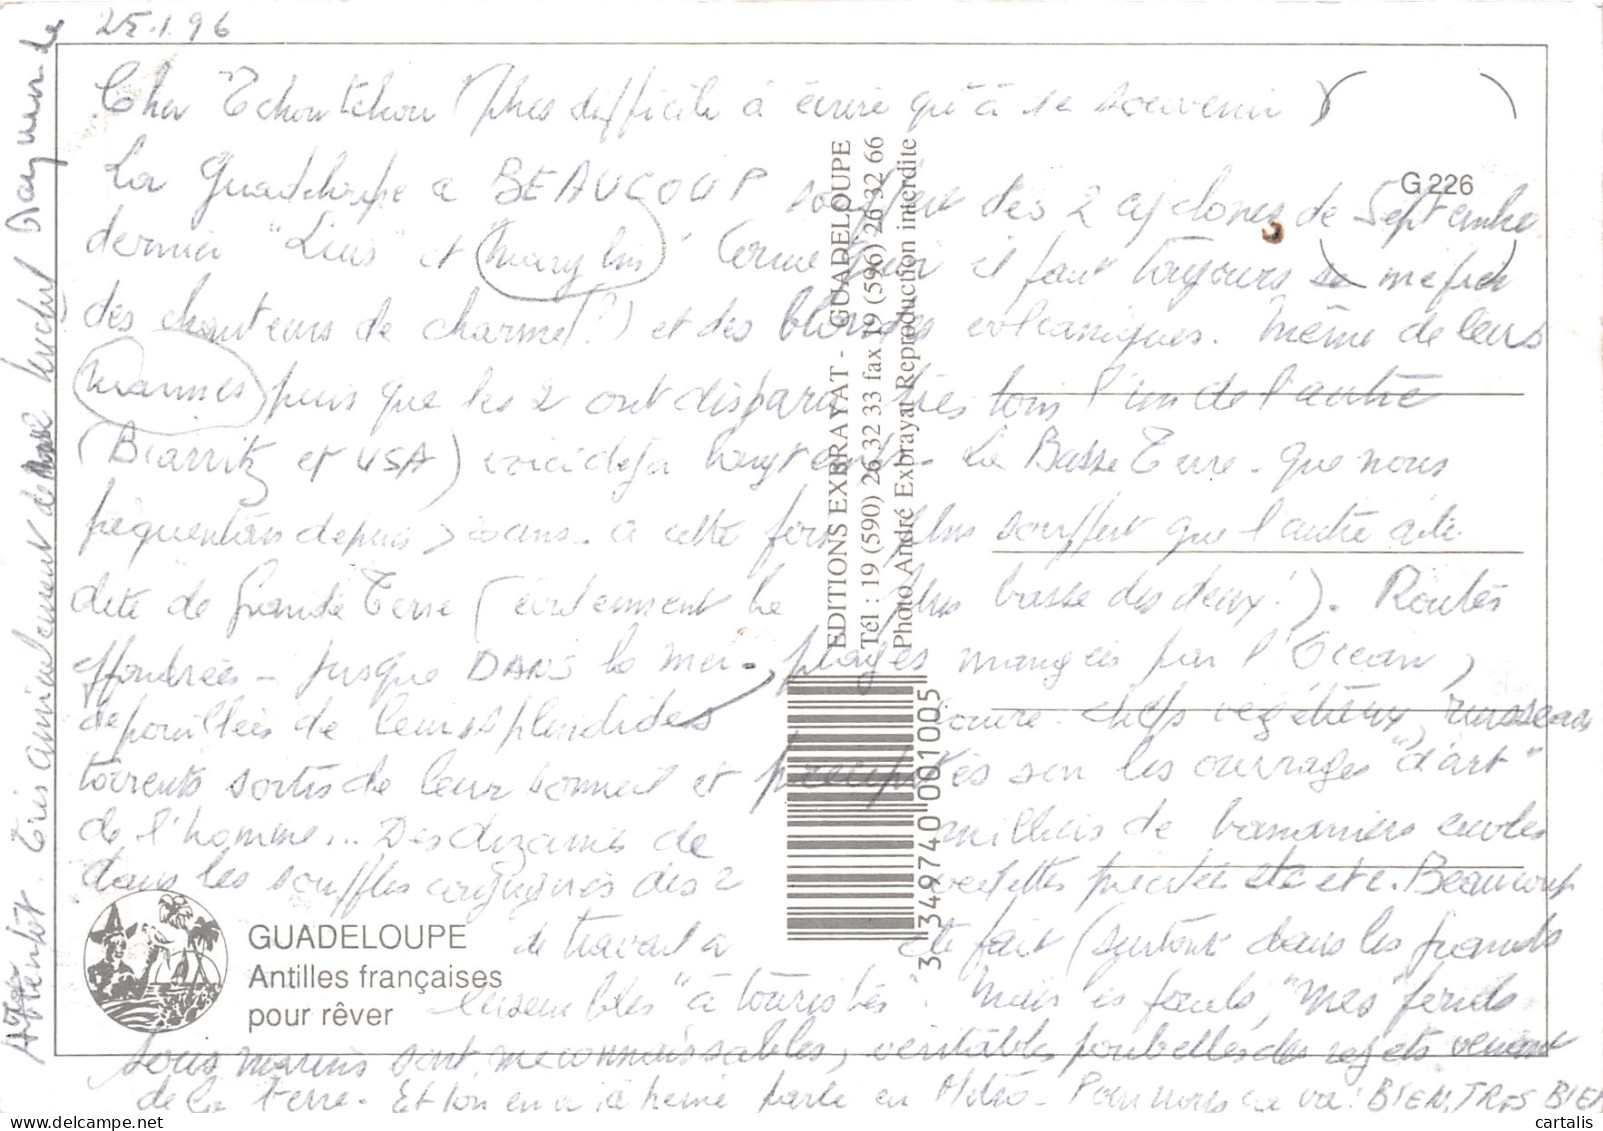 25.1.96
Cher Tchoutchou (plus difficile à écrire qu'à se souvenir)
La Guadeloupe a BEAUCOUP souffert des 2 cyclones de Septembre
dernier "Luis" et Marylin. Comme quoi il faut toujours se méfier
des chanteurs de charme(?) et des blondes volcaniques. Même de leurs
puis que les 2 ont disparu très loin l'un de l'autre
(Biarritz et USA) voici déjà longtemps. La Basse Terre - que nous
fréquentons depuis > 20 ans - a cette fois plus souffert que l'autre aile
dite de Grande Terre (évidemment la plus basse des deux!). Routes
effondrées - jusque DANS la mer -, plages mangées par l'Océan,
dépouillées de leur splendides végétaux, ruisseaux
torrents sortis de leur sommeil et précipités sur les ouvrages "d'art"
de l'homme... Des dizaines de milliers de bananiers
dans les souffles conjugués des 2 vedettes précitées etc etc. Beaucoup
de travail a été fait (surtout dans les grands
ensembles "à touristes". Mais les fonds, "mes" fonds
sous marins sont méconnaissables, véritables poubelles des rejets venant
de la terre. Et l'on en a à peine parlé en Métro. Pour nous ça va: BIEN, TRES BIEN
A bientôt. Très amicalement de
G 226
EDITIONS EXBRAYAT - GUADELOUPE
Tél : 19 (590) 26 32 33 fax 19 (596) 26 32 66
Photo André Exbrayat Reproduction interdite
3 349740 001005
GUADELOUPE
Antilles françaises
pour rêver
www.delcampe.net
cartalis